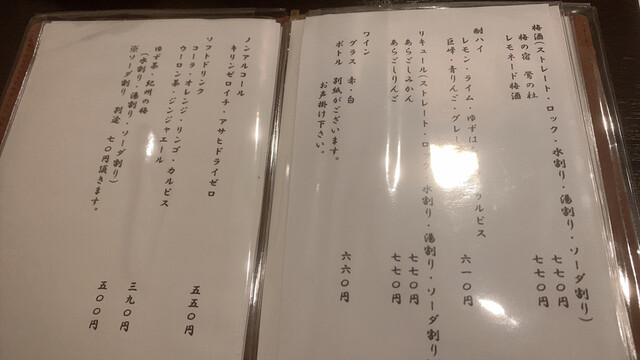 梅酒(ストレート・ロック・水割り・湯割り・ソーダ割り)
梅の宿 鶯の杜 七七〇円
レモネード梅酒 七七〇円
酎ハイ
レモン・ライム・ゆずは カルピス
巨峰・青りんご・グレー 六一〇円
リキュール(ストレート・ロック 水割り・湯割り・ソーダ割り
あらごしみかん 七七〇円
あらごしりんご 七七〇円
ワイン
グラス 赤・白 六六〇円
ボトル 別紙がございます。
お声掛け下さい。
ノンアルコール
キリンゼロイチ・アサヒドライゼロ 五五〇円
ソフトドリンク
コーラ・オレンジ・リンゴ・カルピス
ウーロン茶・ジンジャエール 三九〇円
ゆず茶・紀州の梅 五〇〇円
(水割り・湯割り・ソーダ割り)
※ソーダ割り 別途 七〇円頂きます。